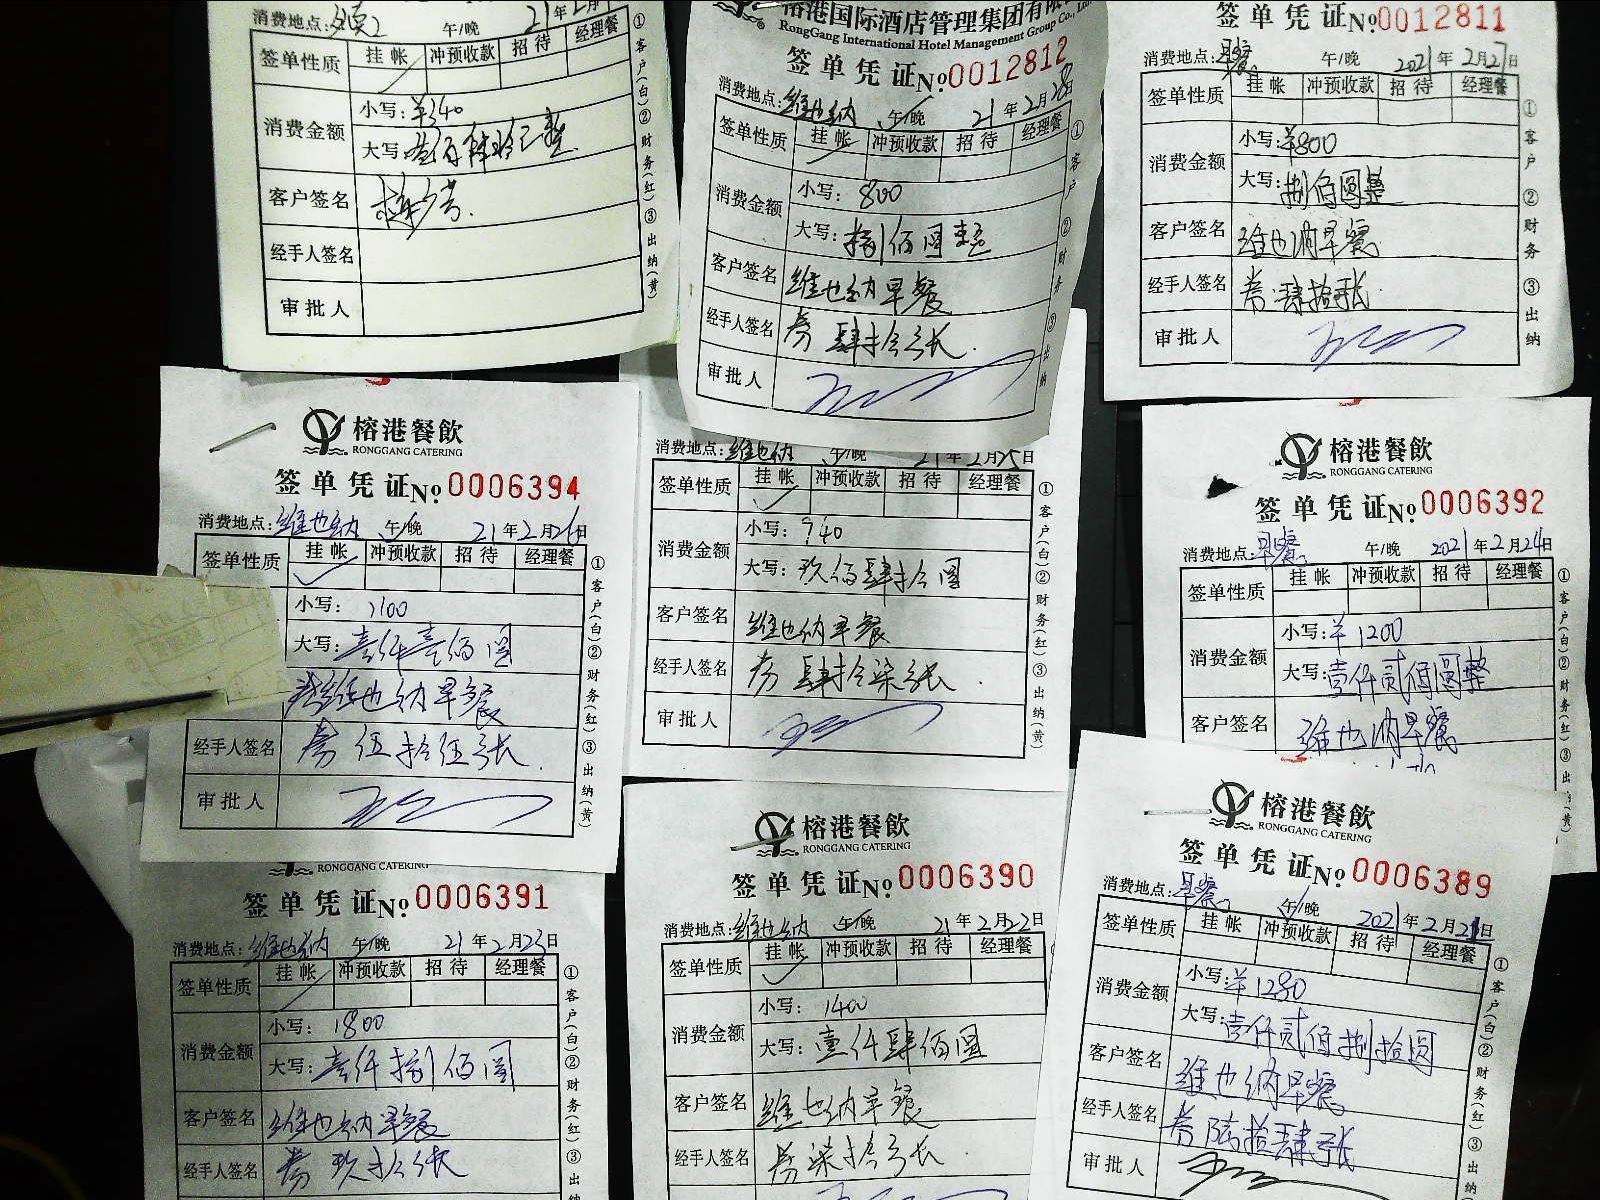 消费地点: 午/晚 21年2月
签单性质 挂帐 冲预收款 招待 经理餐
消费金额 小写:¥340
大写:
客户签名
经手人签名
审批人
①客户(白)②财务(红)③出纳(黄)
榕港国际酒店管理集团有限
RongGang International Hotel Management Group Co.,
签单凭证No.0012812
消费地点:维也纳 午/晚 21年2月28日
签单性质 挂帐 冲预收款 招待 经理餐
消费金额 小写:800
大写:捌佰圆整
客户签名 维也纳早餐
经手人签名 券肆拾张
审批人
①客户 ②财务 ③出纳
签单凭证No.0012811
消费地点:早餐 午/晚 2021年2月27日
签单性质 挂帐 冲预收款 招待 经理餐
消费金额 小写:¥800
大写:捌佰圆整
客户签名 维也纳早餐
经手人签名 券肆拾张
审批人
①客户 ②财务 ③出纳
榕港餐飲
RONGGANG CATERING
签单凭证No.0006394
消费地点:维也纳 午/晚 21年2月26日
签单性质 挂帐 冲预收款 招待 经理餐
小写:1100
大写:壹仟壹佰圆
维也纳早餐
经手人签名 券伍拾伍张
审批人
①客户(白)②财务(红)③出纳(黄)
消费地点:维也纳 午/晚 21年2月25日
签单性质 挂帐 冲预收款 招待 经理餐
消费金额 小写:940
大写:玖佰肆拾圆
客户签名 维也纳早餐
经手人签名 券肆拾柒张
审批人
①客户(白)②财务(红)③出纳(黄)
榕港餐飲
RONGGANG CATERING
签单凭证No.0006392
消费地点:早餐 午/晚 2021年2月24日
签单性质 挂帐 冲预收款 招待 经理餐
消费金额 小写:¥1200
大写:壹仟贰佰圆整
客户签名 维也纳早餐
①客户(白)②财务(红)③出纳(黄)
RONGGANG CATERING
签单凭证No.0006391
消费地点:维也纳 午/晚 21年2月23日
签单性质 挂帐 冲预收款 招待 经理餐
消费金额 小写:1800
大写:壹仟捌佰圆
客户签名 维也纳早餐
经手人签名 券玖拾张
①客户(白)②财务(红)③出纳
榕港餐飲
RONGGANG CATERING
签单凭证No.0006390
消费地点:维也纳 午/晚 21年2月22日
签单性质 挂帐 冲预收款 招待 经理餐
消费金额 小写:1400
大写:壹仟肆佰圆
客户签名 维也纳早餐
经手人签名 券柒拾张
榕港餐飲
RONGGANG CATERING
签单凭证No.0006389
消费地点:早餐 午/晚 2021年2月21日
签单性质 挂帐 冲预收款 招待 经理餐
消费金额 小写:¥1280
大写:壹仟贰佰捌拾圆
客户签名 维也纳早餐
经手人签名 券陆拾肆张
审批人
①客户(白)②财务(红)③出纳